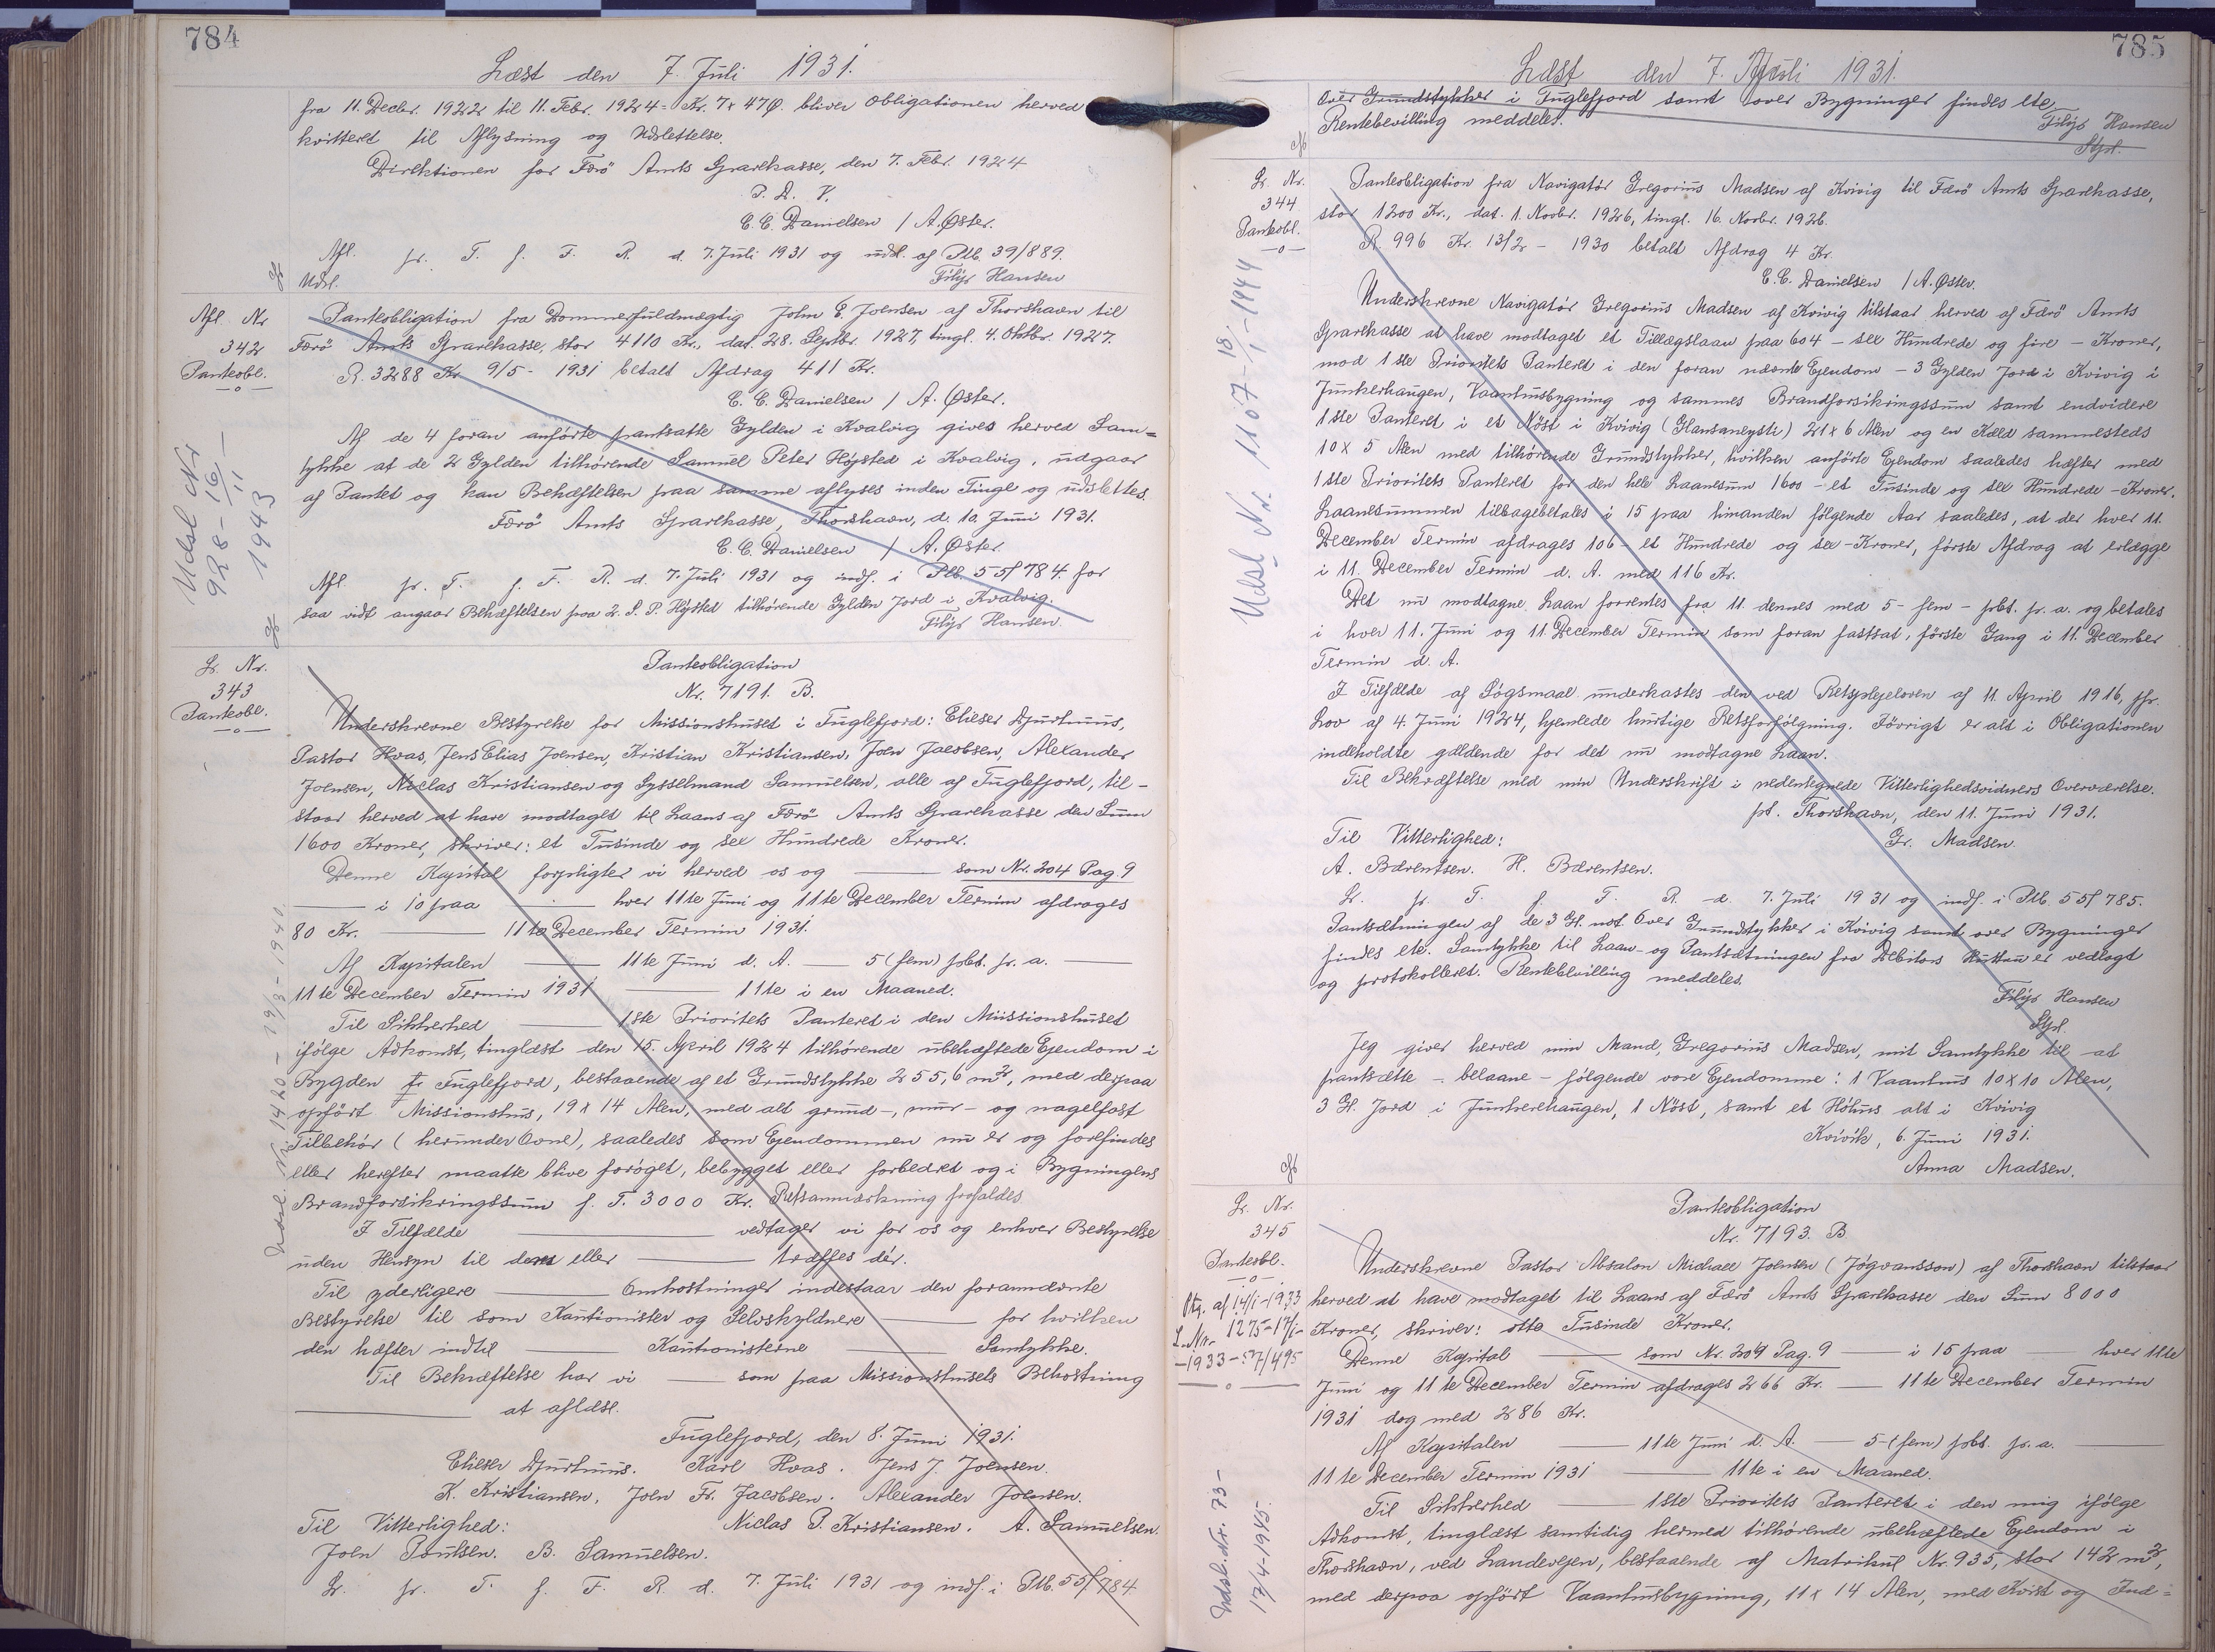 784
Læst den 7. Juli 1931.
fra 11. Decbr. 1922 til 11. Febr. 1924 = Kr. 7 x 47 Ø. bliver Obligationen herved
kvitteret til Aflysning og Udslettelse.
Direktionen for Færö Amts Sparekasse, den 7. Febr. 1924
P. D. V.
C. C. Danielsen / A. Øster.
Afl. pr. T. f. F. R. d. 7. Juli 1931 og udsl. af Ptb 39/889.
Udsl. Filip Hansen
Afl. Nr
342
Panteobl.
Udsl Nr
928 - 16/11 -
1943
Panteobligation fra Dommerfuldmægtig John E. Joensen af Thorshavn til
Færö Amts Sparekasse, stor 4110 Kr., dat. 28. Septbr. 1927, tingl. 4. Oktbr. 1927.
R. 3288 Kr 9/5 - 1931 betalt Afdrag 411 Kr.
C. C. Danielsen / A. Øster.
Af de 4 foran anförte pantsatte Gylden i Kvalvig gives herved Sam=
tykke at de 2 Gylden tilhörende Samuel Peter Højsted i Kvalvig, udgaar
af Pantet og kan Behæftelsen paa samme aflyses inden Tinge og udslettes.
Færö Amts Sparekasse, Thorshavn, d. 10. Juni 1931.
C. C. Danielsen / A. Øster.
Afl. pr. T. f. F. R. d. 7. Juli 1931 og indf. i Ptb. 55/784. for
saa vidt angaar Behæftelsen paa 2. S. P. Højsted tilhörende Gylden Jord i Kvalvig.
Filip Hansen.
Lr. Nr.
343
Panteobl.
Udsl. Nr 1420 - 19/3 - 1940.
Panteobligation
Nr. 7191. B.
Underskrevne Bestyrelse for Missionshuset i Fuglefjord: Elieser Djurhuus,
Pastor Hvas, Jens Elias Joensen, Kristian Kristiansen, Joen Jacobsen, Alexander
Joensen, Niclas Kristiansen og Sysselmand Samuelsen, alle af Fuglefjord, til-
staar herved at have modtaget til Laans af Færö Amts Sparekasse den Sum
1600 Kroner, skriver: et Tusinde og sex Hundrede Kroner.
Denne Kapital forpligter vi herved os og — som Nr. 204 Pag. 9
— i 10 paa — hver 11te Juni og 11te December Termin afdrages
80 Kr. — 11te December Termin 1931.
Af Kapitalen — 11te Juni d. A. — 5 (fem) pCt. pr. a. —
11te December Termin 1931 — 11te i en Maaned.
Til Sikkerhed — 1ste Prioritets Panteret i den Missionshuset
ifölge Adkomst, tinglæst den 15. April 1924 tilhörende ubehæftede Ejendom i
Bygden Fuglefjord, bestaaende af et Grundstykke 255,6 m², med derpaa
opfört Missionshus, 19 x 14 Alen, med alt grund-, mur- og nagelfast
Tilbehör (herunder Ovne), saaledes som Ejendommen nu er og forefindes
eller herefter maatte blive foröget, bebygget eller forbedret og i Bygningens
Brandforsikringssum f. T. 3000 Kr. Retsanmærkning frafaldes
I Tilfælde — vedtager vi for os og enhver Bestyrelse
uden Hensyn til dens eller — træffes dér.
Til yderligere — Omkostninger indestaar den forannævnte
Bestyrelse til som Kautionister og Selvskyldnere — for hvilken
den hæfter indtil — Kautionisterne — Samtykke.
Til Bekræftelse har vi — som paa Missionshusets Bekostning
— at aflæse.
Fuglefjord, den 8. Juni 1931.
Elieser Djurhuus. Karl Hvas. Jens J. Joensen.
K. Kristiansen. Joen Fr. Jacobsen. Alexander Joensen.
Til Vitterlighed: Niclas P. Kristiansen. A. Samuelsen.
Joen Poulsen. B. Samuelsen.
Lr. pr. T. f. F. R. d. 7. Juli 1931 og indf. i Ptb. 55/784.
785
Læst den 7. Juli 1931.
Over Grundstykker i Fuglefjord samt over Bygninger findes ete.
Rentebevilling meddeles. Filip Hansen
Lr. Nr.
344
Panteobl.
Udsl Nr. 1107 - 18/1 - 1944
Panteobligation fra Navigatör Gregorius Madsen af Kvivig til Færö Amts Sparekasse,
stor 1200 Kr., dat. 1. Novbr. 1926, tingl. 16. Novbr. 1926.
R. 996 Kr. 13/2 - 1930 betalt Afdrag 4 Kr.
C. C. Danielsen / A. Øster.
Underskrevne Navigatör Gregorius Madsen af Kvivig tilstaar herved af Færö Amts
Sparekasse at have modtaget et Tillægslaan paa 604 - sex Hundrede og fire - Kroner,
mod 1ste Prioritets Panteret i den foran nævnte Ejendom - 3 Gylden Jord i Kvivig i
Junkerhaugen, Vaanhusbygning og sammes Brandforsikringssum samt endvidere
1ste Panteret i et Nöst i Kvivig (Hansaneysti) 21 x 6 Alen og en Kæld sammesteds
10 x 5 Alen med tilhörende Grundstykker, hvilken anförte Ejendom saaledes hæfter med
1ste Prioritets Panteret for den hele Laanesum 1600 - et Tusinde og sex Hundrede - Kroner.
Laanesummen tilbagebetales i 15 paa hinanden fölgende Aar saaledes, at der hver 11.
December Termin afdrages 106 - et Hundrede og sex - Kroner, förste Afdrag at erlægge
i 11. December Termin d. A. med 116 Kr.
Det nu modtagne Laan forrentes fra 11. dennes med 5 - fem - pCt. pr. a. og betales
i hver 11. Juni og 11. December Termin som foran fastsat, förste Gang i 11. December
Termin d. A.
I Tilfælde af Sögsmaal underkastes den ved Retsplejeloven af 11. April 1916, jfr.
Lov af 4. Juni 1924, hjemlede hurtige Retsforfölgning. Iövrigt er alt i Obligationen
indeholdte gældende for det nu modtagne Laan.
Til Bekræftelse med min Underskrift i nedentegnede Vitterlighedsvidners Overværelse.
pt. Thorshavn, den 11. Juni 1931.
Til Vitterlighed: Gr. Madsen.
A. Bærentsen. H. Bærentsen.
Lr. pr. T. f. F. R. d. 7. Juli 1931 og indf. i Ptb. 55/785.
Pantsætningen af de 3 Gl. Over Grundstykker i Kvivig samt over Bygninger
findes ete. Samtykke til Laan- og Pantsætningen fra Debitors Hustru er vedlagt
og protokolleret. Rentebevilling meddeles.
Filip Hansen
Jeg giver herved min Mand, Gregorius Madsen, mit Samtykke til at
pantsætte - belaane - fölgende vore Ejendomme: 1 Vaanhus 10 x 10 Alen,
3 Gl. Jord i Junkerehaugen, 1 Nöst, samt et Höhus alt i Kvivig
Kvívík, 6. Juni 1931.
Anna Madsen.
Lr. Nr.
345
Panteobl.
Ptg. af 14/1-1933
L.Nr. 1275-17/1-
-1933-57/495
Udsl. Nr. 73 -
17/4-1945.
Panteobligation
Nr. 7193. B
Underskrevne Pastor Absalon Michael Joensen (Jógvansson) af Thorshavn tilstaar
herved at have modtaget til Laans af Færö Amts Sparekasse den Sum 8000
Kroner, skriver: otte Tusinde Kroner.
Denne Kapital — som Nr. 204 Pag. 9 — i 15 paa — hver 11te
Juni og 11te December Termin afdrages 266 Kr. — 11te December Termin
1931 dog med 286 Kr.
Af Kapitalen — 11te Juni d. A. — 5 - (fem) pCt. pr. a. —
11te December Termin 1931 — 11te i en Maaned.
Til Sikkerhed — 1ste Prioritets Panteret i den mig ifölge
Adkomst, tinglæst samtidig hermed tilhörende ubehæftede Ejendom i
Thorshavn, ved Landevejen, bestaaende af Matrikul Nr. 935, stor 142 m²,
med derpaa opfört Vaanhusbygning, 11 x 14 Alen, med Kvist og Ind=